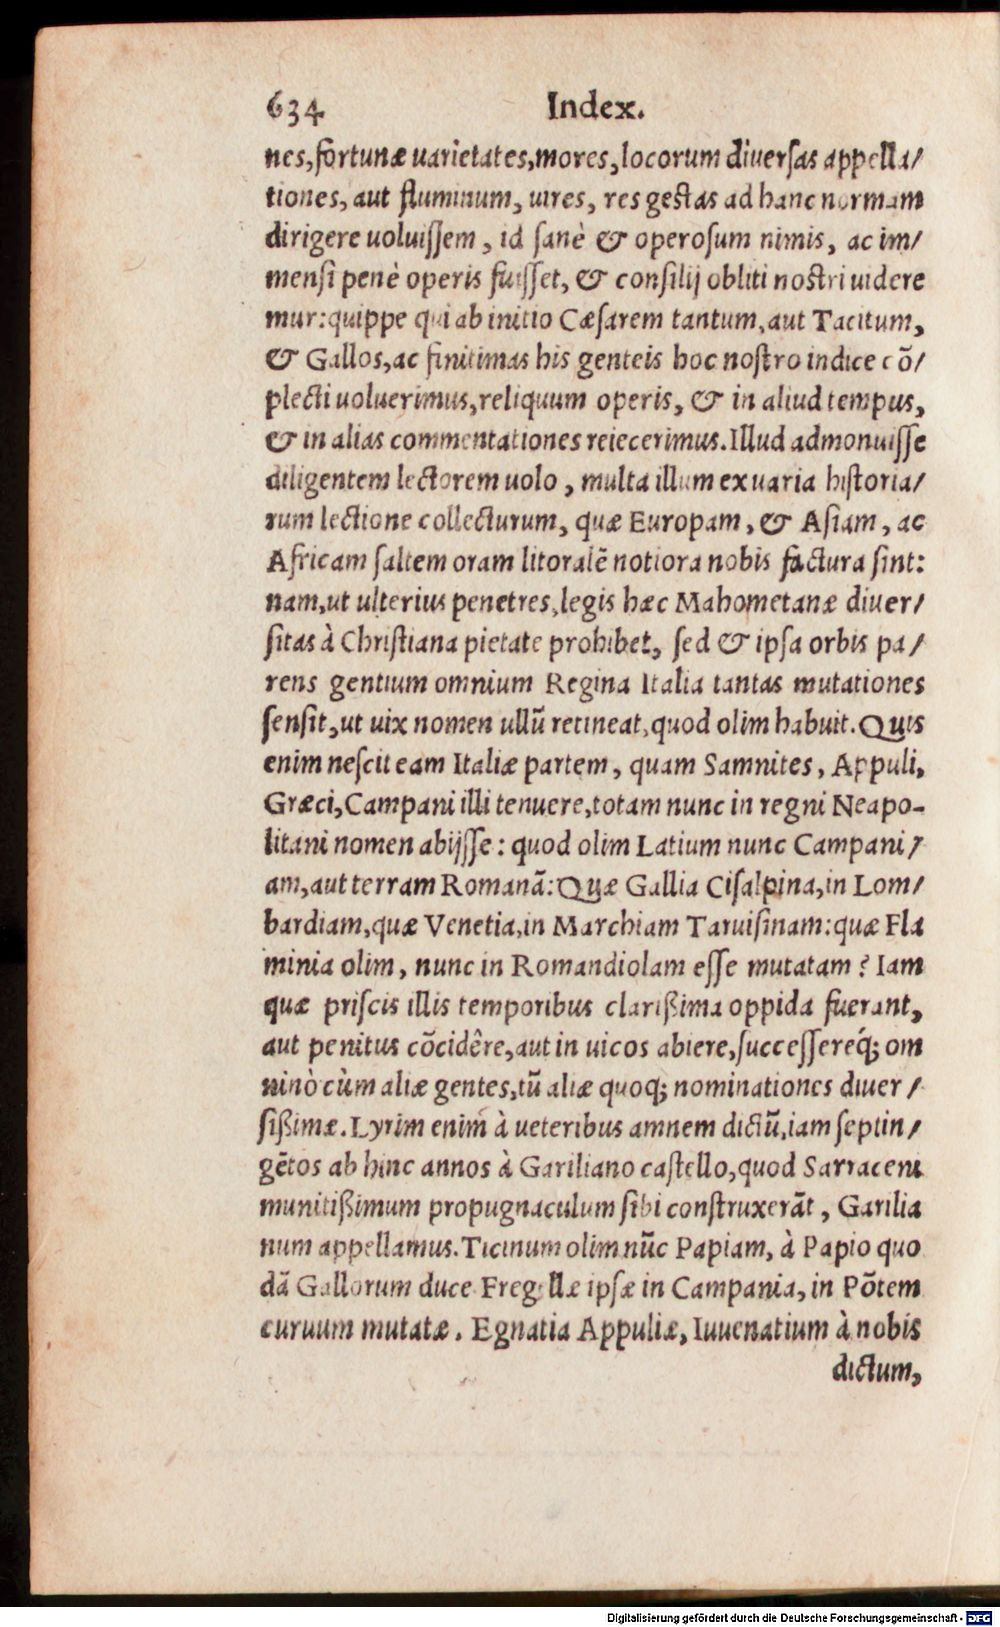 634 Index.
nes, fortunæ uarietates, mores, locorum diuersas appella/
tiones, aut fluminum, uires, res gestas ad hanc normam
dirigere uoluissem, id sanè & operosum nimis, ac im/
mensi penè operis fuisset, & consilij obliti nostri uidere
mur: quippe qui ab initio Cæsarem tantum, aut Tacitum,
& Gallos, ac finitimas his genteis hoc nostro indice cō/
plecti uoluerimus, reliquum operis, & in aliud tempus,
& in alias commentationes reiecerimus. Illud admonuisse
diligentem lectorem uolo, multa illum ex uaria historia/
rum lectione collecturum, quæ Europam, & Asiam, ac
Africam saltem oram litoralē notiora nobis factura sint:
nam, ut ulterius penetres, legis hæc Mahometanæ diuer/
sitas à Christiana pietate prohibet, sed & ipsa orbis pa/
rens gentium omnium Regina Italia tantas mutationes
sensit, ut uix nomen ullū retineat, quod olim habuit. Quis
enim nescit eam Italiæ partem, quam Samnites, Appuli,
Græci, Campani illi tenuere, totam nunc in regni Neapo-
litani nomen abijsse: quod olim Latium nunc Campani/
am, aut terram Romanā: Quæ Gallia Cisalpina, in Lom/
bardiam, quæ Venetia, in Marchiam Taruisinam: quæ Fla
minia olim, nunc in Romandiolam esse mutatam? Iam
quæ priscis illis temporibus clarißima oppida fuerant,
aut penitus cōcidêre, aut in uicos abiere, successereq́; om
ninò cùm aliæ gentes, tū aliæ quoq; nominationes diuer/
sißimæ. Lyrim enim à ueteribus amnem dictū, iam septin/
gētos ab hinc annos à Gariliano castello, quod Sarraceni
munitißimum propugnaculum sibi construxerāt, Garilia
num appellamus. Ticinum olim nūc Papiam, à Papio quo
dā Gallorum duce Fregellæ ipsæ in Campania, in Pōtem
curuum mutatæ. Egnatia Appuliæ, Iuuenatium à nobis
dictum,
Digitalisierung gefördert durch die Deutsche Forschungsgemeinschaft - DFG